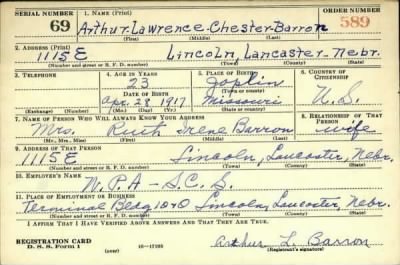 SERIAL NUMBER 1. NAME (Print) ORDER NUMBER
69 Arthur Lawrence Chester Barron 589
(First) (Middle) (Last)
2. ADDRESS (Print)
1115 E Lincoln, Lancaster, Nebr.
(Number and street or R. F. D. number) (Town) (County) (State)
3. TELEPHONE 4. AGE IN YEARS 5. PLACE OF BIRTH 6. COUNTRY OF CITIZENSHIP
23 Joplin
DATE OF BIRTH (Town or county)
Apr. 28 1917 Missouri U.S.
(Exchange) (Number) (Mo.) (Day) (Yr.) (State or country)
7. NAME OF PERSON WHO WILL ALWAYS KNOW YOUR ADDRESS 8. RELATIONSHIP OF THAT PERSON
Mrs. Ruth Irene Barron wife
(Mr., Mrs., Miss) (First) (Middle) (Last)
9. ADDRESS OF THAT PERSON
1115 E Lincoln, Lancaster, Nebr.
(Number and street or R. F. D. number) (Town) (County) (State)
10. EMPLOYER'S NAME
W.P.A - S.C.S.
11. PLACE OF EMPLOYMENT OR BUSINESS
Terminal Bldg 10&O Lincoln, Lancaster, Nebr.
(Number and street or R. F. D. number) (Town) (County) (State)
I AFFIRM THAT I HAVE VERIFIED ABOVE ANSWERS AND THAT THEY ARE TRUE.
REGISTRATION CARD
D. S. S. Form 1 (over) Arthur L. Barron
(Registrant's signature)